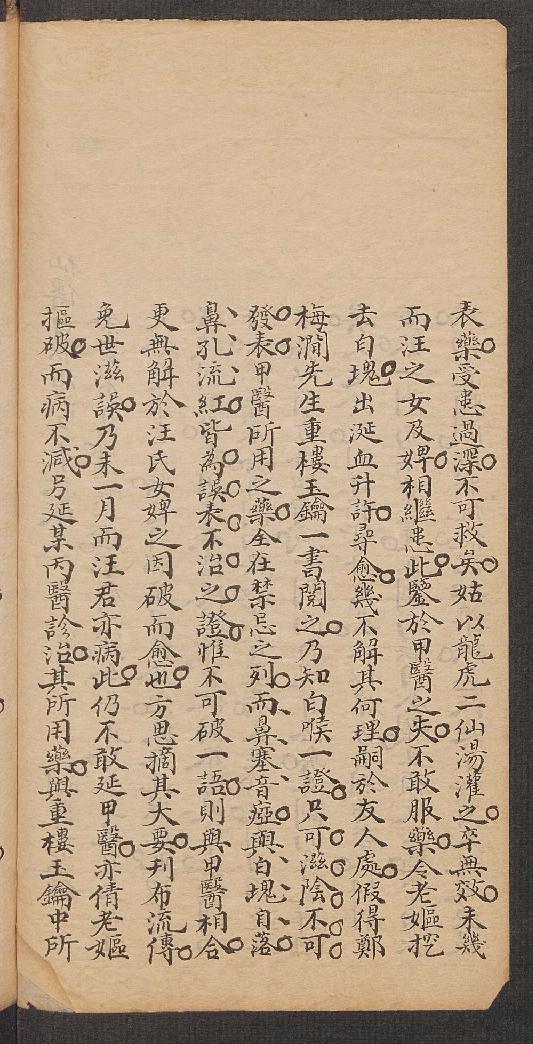 表藥受患過深不可救矣姑以龍虎二仙湯灌之卒無效未幾
而汪之女及婢相繼患此鑒於甲醫之失不敢服藥令老嫗挖
去白塊出涎血升許尋愈幾不解其何理嗣於友人處假得鄭
梅澗先生重樓玉鑰一書閱之乃知白喉一證只可滋陰不可
發表甲醫所用之藥全在禁忌之列而鼻塞音瘂與白塊自落
鼻孔流紅皆為誤表不治之證惟不可破一語則與甲醫相合
更無解於汪氏女婢之因破而愈也方思摘其大要刊布流傳
免世滋誤乃未一月而汪君亦病此仍不敢延甲醫亦倩老嫗
摳破而病不減另延某丙醫診治其所用藥與重樓玉鑰中所